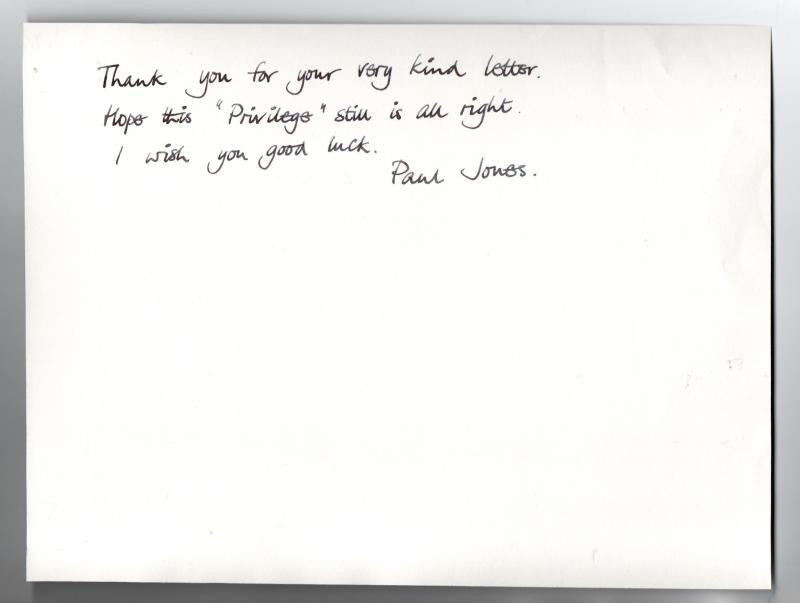 Thank you for your very kind letter.
Hope this "Privilege" still is all right.
I wish you good luck.
Paul Jones.